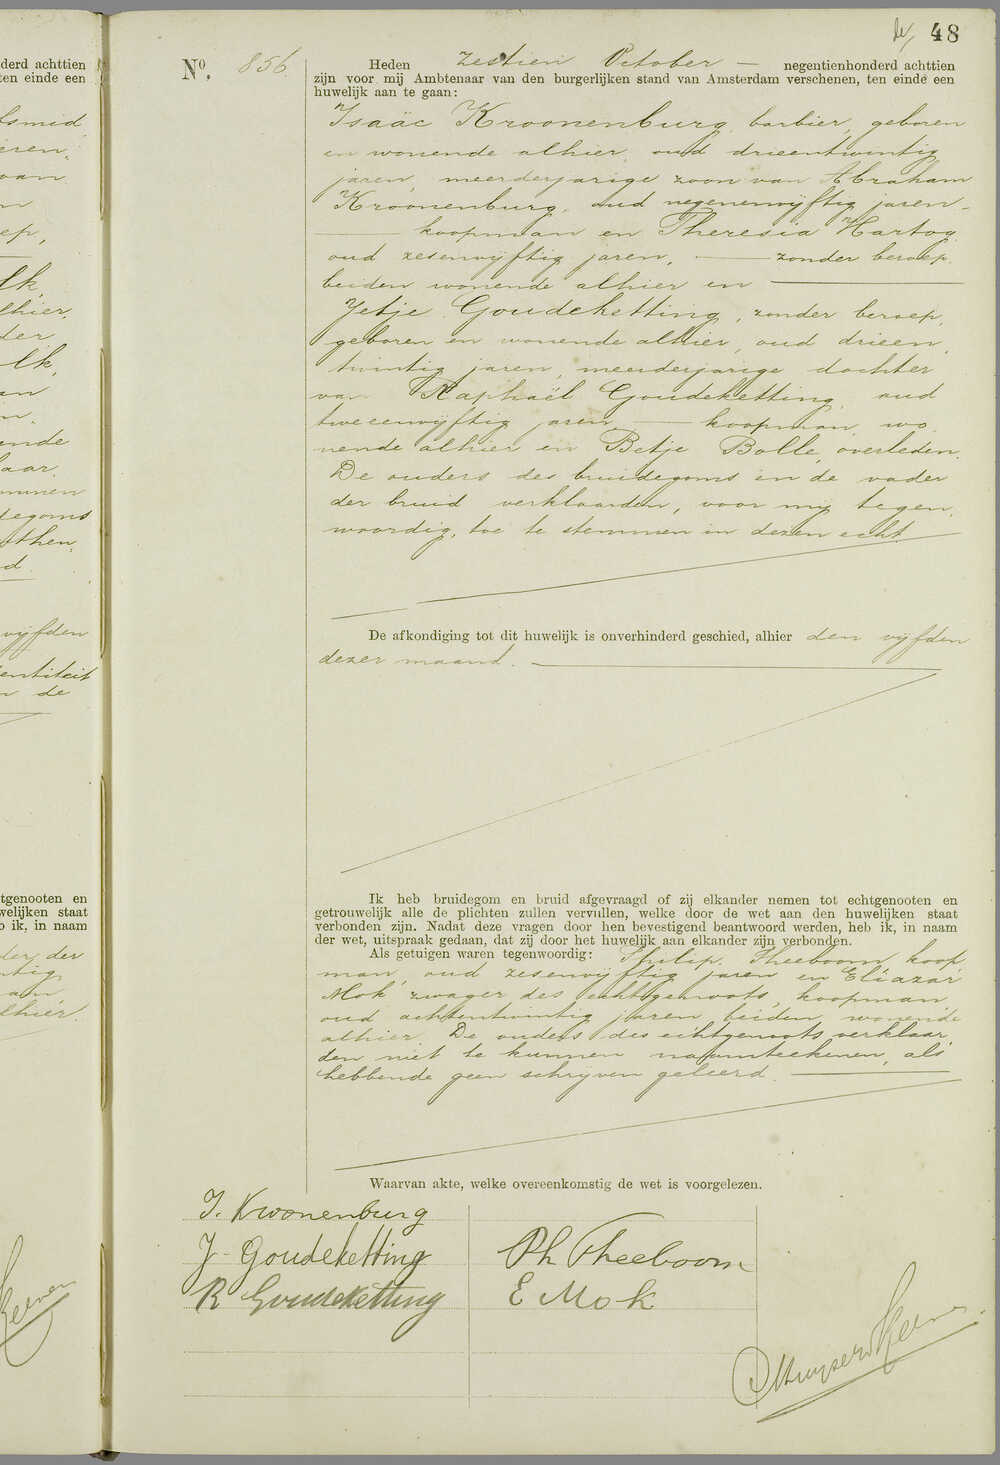 48
No. 856.
Heden zestien October — negentienhonderd achttien
zijn voor mij Ambtenaar van den burgerlijken stand van Amsterdam verschenen, ten einde een
huwelijk aan te gaan:
Isaäc Kroonenburg, barbier, geboren
en wonende alhier, oud drieentwintig
jaren, meerderjarige zoon van Abraham
Kroonenburg, oud negenenvijftig jaren,
koopman en Theresia Hartog
oud zesenvijftig jaren, — zonder beroep,
beiden wonende alhier en
Jetje Goudeketting, zonder beroep,
geboren en wonende alhier, oud drieen
twintig jaren, meerderjarige dochter
van Raphaël Goudeketting, oud
tweeenvijftig jaren — koopman, wo
nende alhier en Betje Bolle, overleden.
De ouders des bruidegoms en de vader
der bruid verklaarden, voor mij tegen
woordig, toe te stemmen in dezen echt.
De afkondiging tot dit huwelijk is onverhinderd geschied, alhier den vijfden
dezer maand.
Ik heb bruidegom en bruid afgevraagd of zij elkander nemen tot echtgenooten en
getrouwelijk alle de plichten zullen vervullen, welke door de wet aan den huwelijken staat
verbonden zijn. Nadat deze vragen door hen bevestigend beantwoord werden, heb ik, in naam
der wet, uitspraak gedaan, dat zij door het huwelijk aan elkander zijn verbonden.
Als getuigen waren tegenwoordig: Philip Theeboom, koop
man, oud zesenvijftig jaren en Eliazar
Mok, zwager des echtgenoots, koopman,
oud achtentwintig jaren, beiden wonende
alhier. De ouders des echtgenoots verklaar
den niet te kunnen naamteekenen, als
hebbende geen schrijven geleerd.
Waarvan akte, welke overeenkomstig de wet is voorgelezen.
I. Kroonenburg
J. Goudeketting
R Goudeketting
Ph Theeboom
E Mok
derd achttien
ten einde een
lk,
lhier,
der
lk,
ende
aar
degoms
d.
vijfden
entiteit
n de
tgenooten en
welijken staat
b ik, in naam
der der
ntig
lhier.